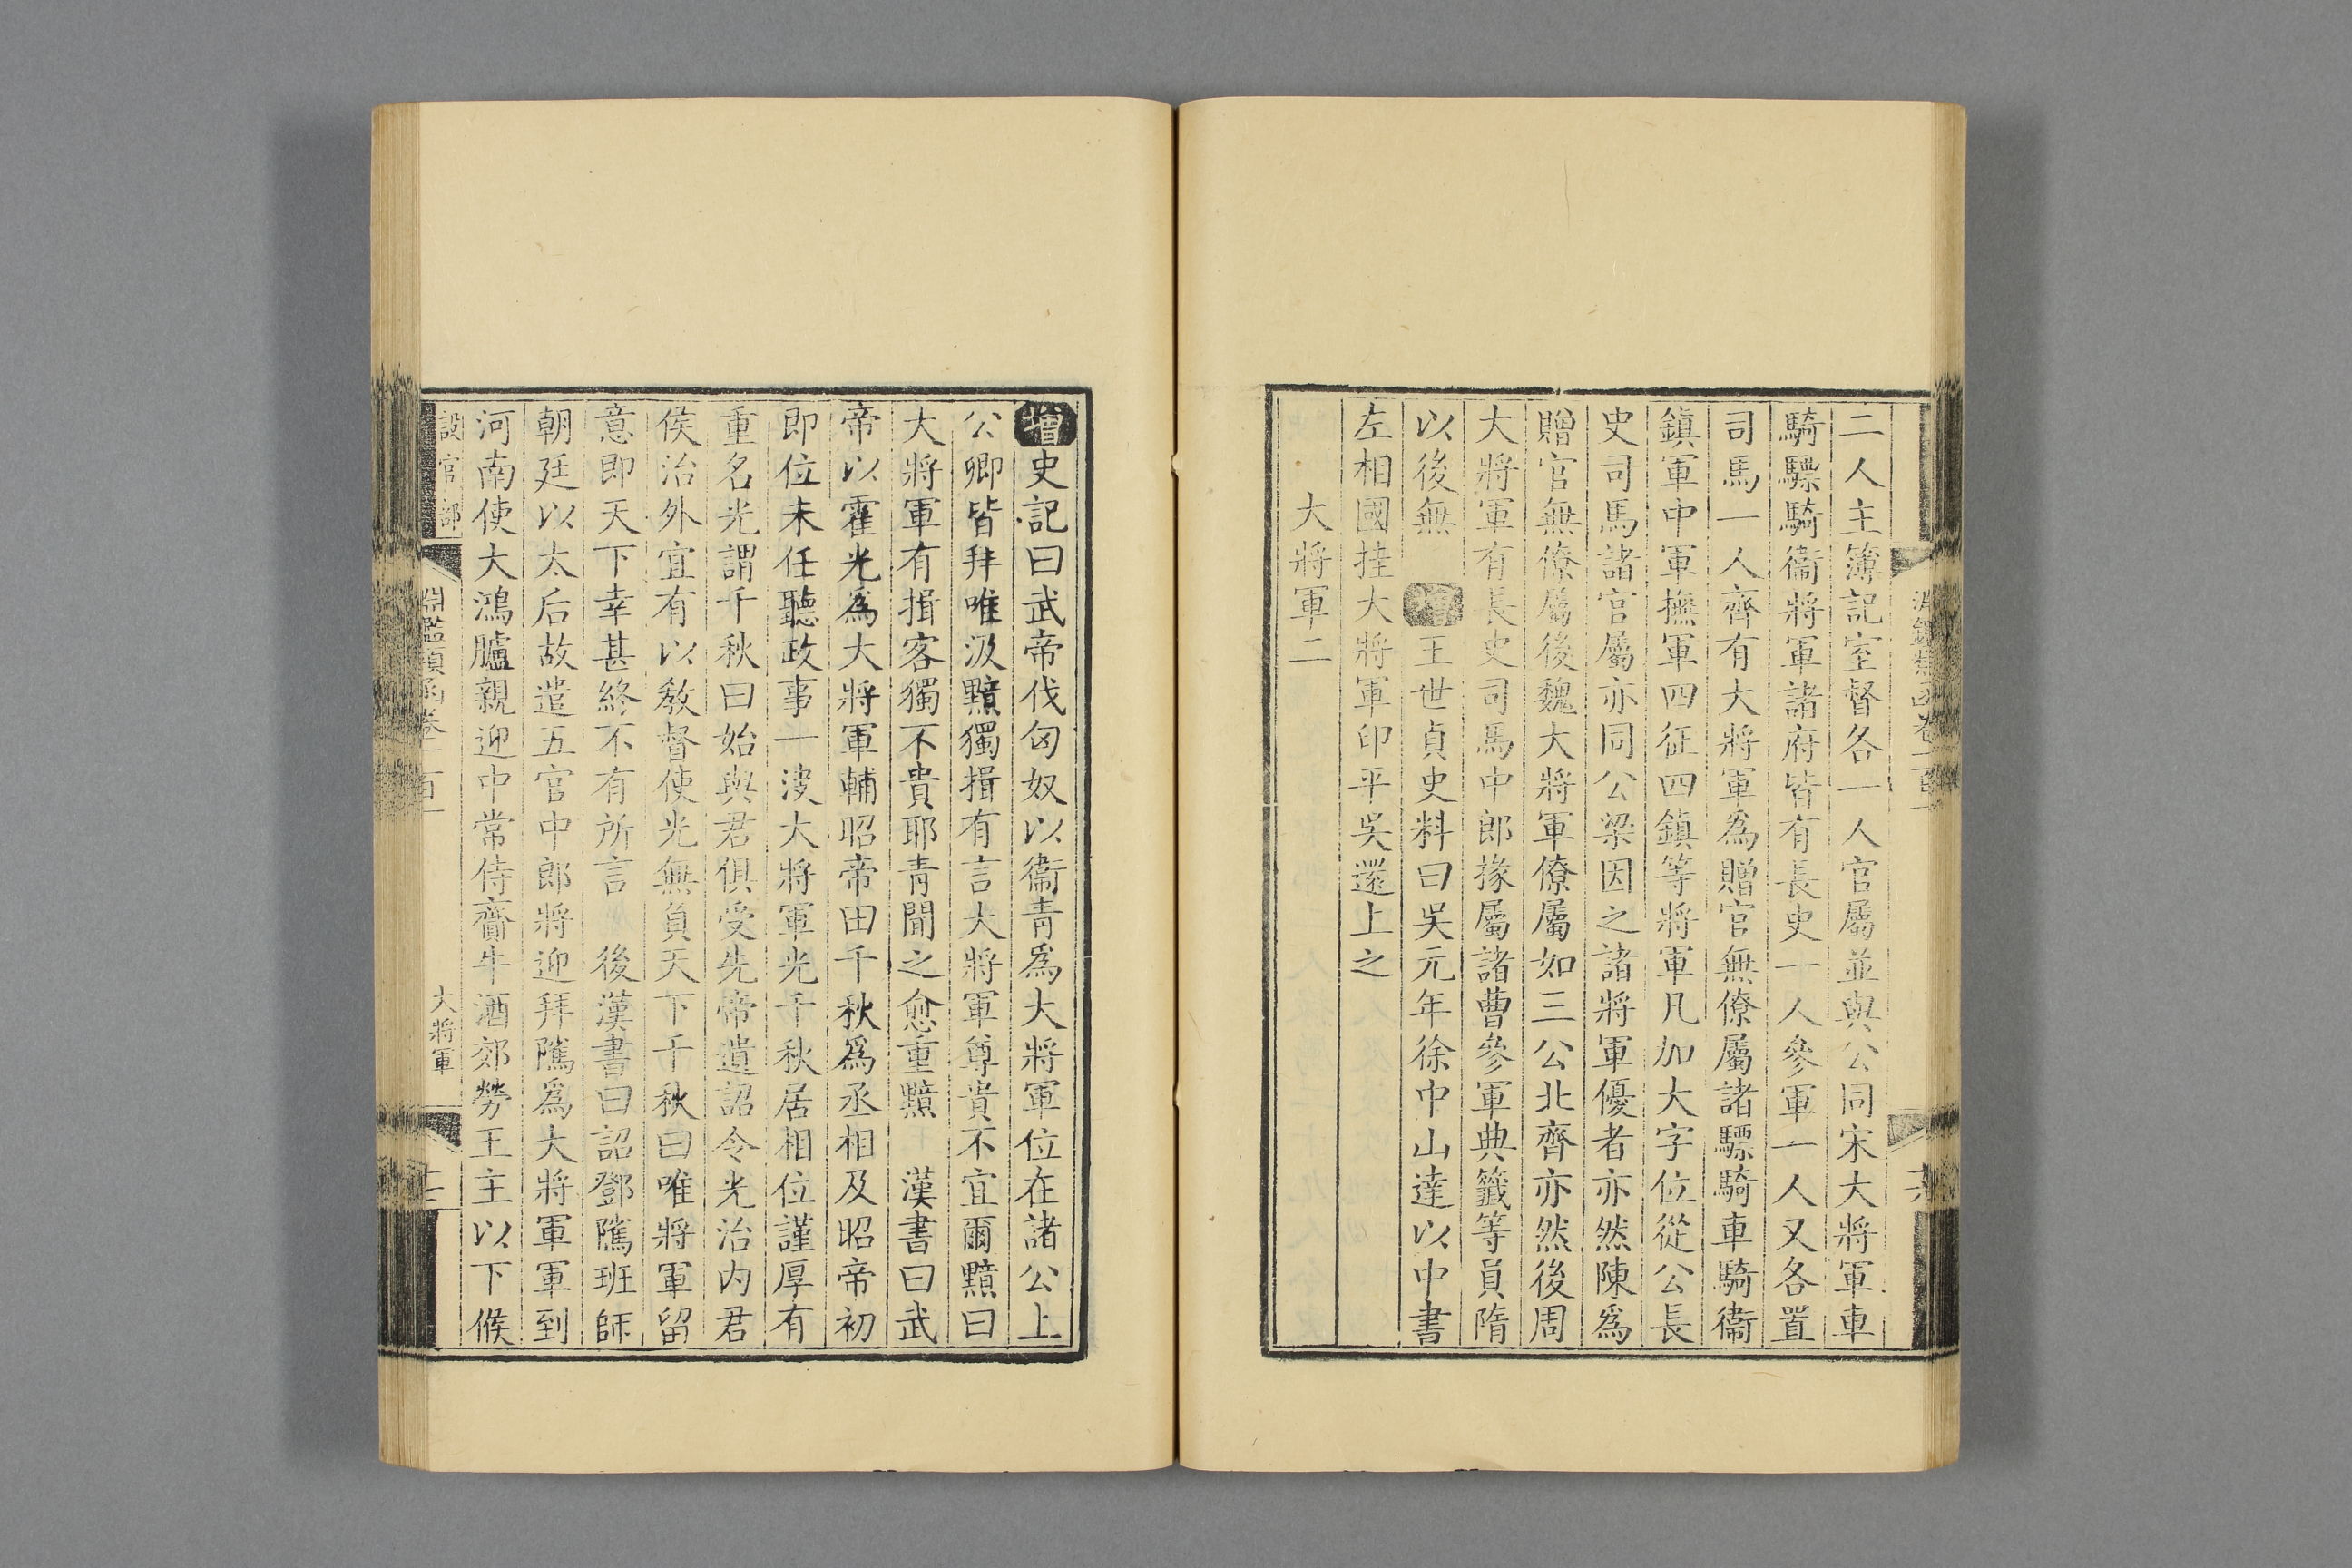 二人主簿記室督各一人官屬並與公同宋大將軍車
騎驃騎衞將軍諸府皆有長史一人參軍一人又各置
司馬一人齊有大將軍爲贈官無僚屬諸驃騎車騎衞
鎭軍中軍撫軍四征四鎭等將軍凡加大字位從公長
史司馬諸官屬亦同公梁因之諸將軍優者亦然陳爲
贈官無僚屬後魏大將軍僚屬如三公北齊亦然後周
大將軍有長史司馬中郎掾屬諸曹參軍典籤等員隋
以後無 增王世貞史料曰吳元年徐中山達以中書
左相國挂大將軍印平吳還上之
大將軍二
增史記曰武帝伐匈奴以衞靑爲大將軍位在諸公上
公卿皆拜唯汲黯獨揖有言大將軍尊貴不宜爾黯曰
大將軍有揖客獨不貴耶靑聞之愈重黯 漢書曰武
帝以霍光爲大將軍輔昭帝田千秋爲丞相及昭帝初
即位未任聽政事一決大將軍光千秋居相位謹厚有
重名光謂千秋曰始與君俱受先帝遺詔令光治内君
侯治外宜有以敎督使光無負天下千秋曰唯將軍留
意即天下幸甚終不有所言 後漢書曰詔鄧隲班師
朝廷以太后故遣五官中郎將迎拜隲爲大將軍軍到
河南使大鴻臚親迎中常侍齎牛酒郊勞王主以下候
設官部 淵鑑類函卷一百一 大將軍